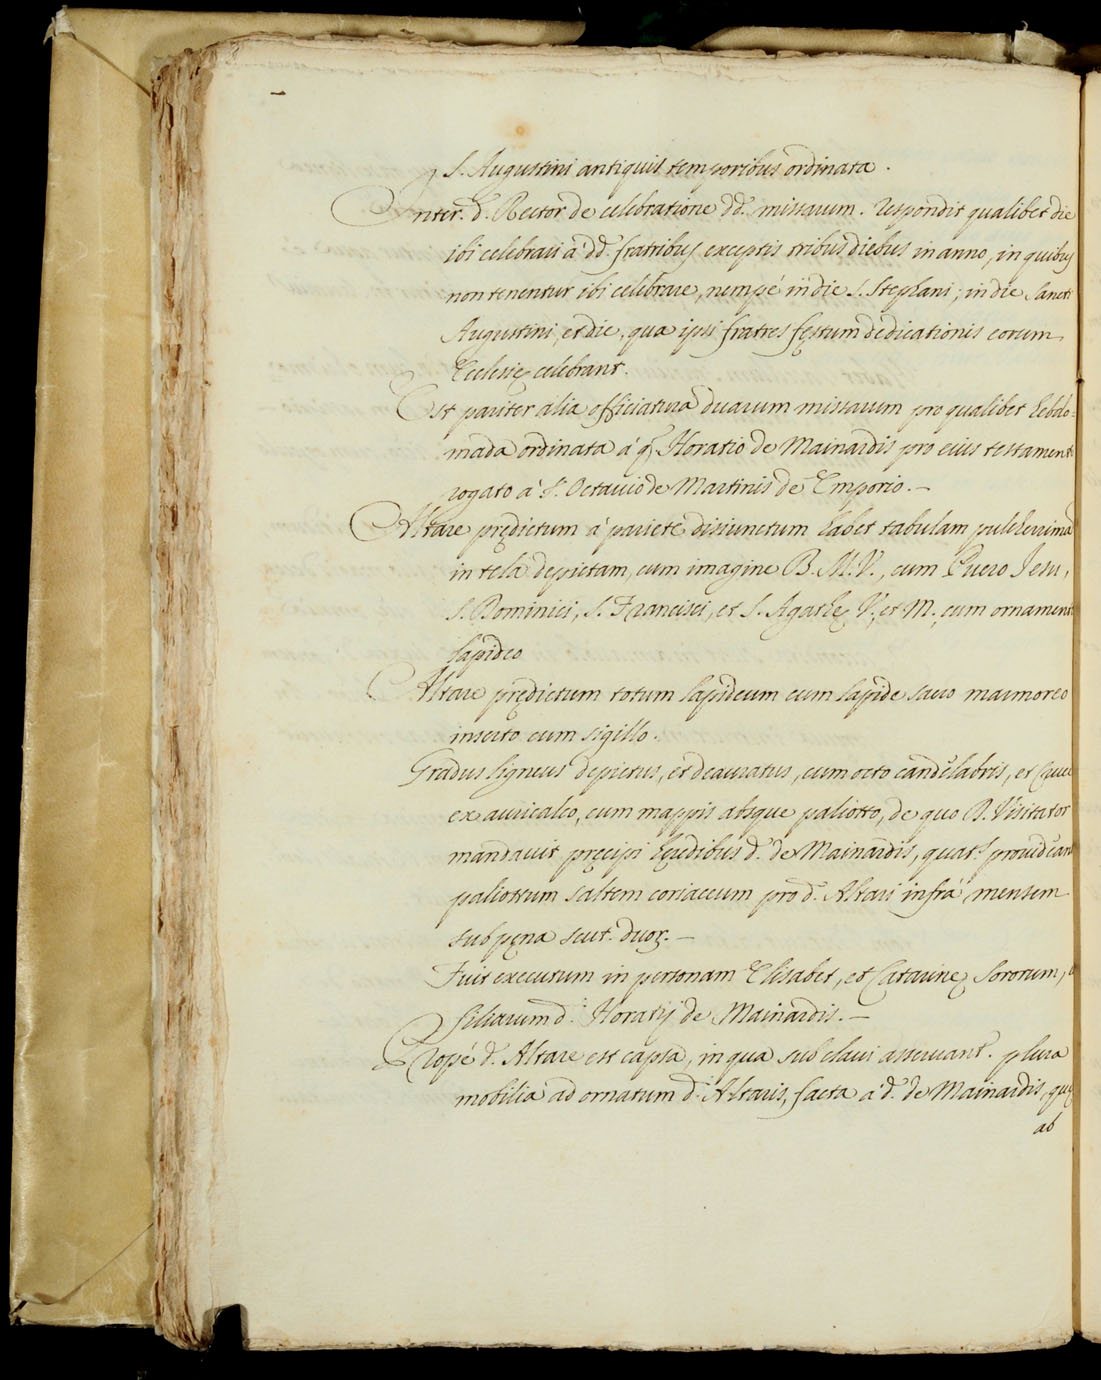 S. Augustini antiquis temporibus ordinata.
Inter. d. Rector de celebratione dd. missarum. respondit qualibet die
ibi celebrari à dd. fratribus exceptis tribus diebus in anno, in quibus
non tenentur ibi celebrare, nempé in die S. Stephani; in die Sancti
Augustini, et die, qua ipsi fratres festum dedicationis eorum
Ecclesię celebrant.
Est pariter alia officiatura duarum missarum pro qualibet hebdo=
mada ordinata à q. Horatio de Mainardis pro eius testament.
rogato à S. Octavio de Martinis de Emporio.—
Altare prędictum à pariete disiunctum habet tabulam pulcherrimam
in tela depictam, cum imagine B. M. V., cum Puero Jesu,
S. Dominici, S. Francisci, et S. Agathę V., et M., cum ornament.
lapideo
Altare prędictum totum lapideum cum lapide sacro marmoreo
inserto cum sigillo.
Gradus ligneus depictus, et deauratus, cum octo candelabris, et Cruce
ex auricalco, cum mappis absque paliotto, de quo R. Visitator
mandavit pręcipi hęredibus d. de Mainardis, quat.s provideant
paliottum saltem coriaceum pro d. Altari infrà mensem
sub pęna scut. duor.—
Fuit executum in personam Elisabet, et Catarinę Sororum,
filiarum d. Horatij de Mainardis.—
Propé d. Altare est capsa, in qua sub clavi asservant. plura
mobilia ad ornatum d. Altaris, facta à d. de Mainardis, quę
ab